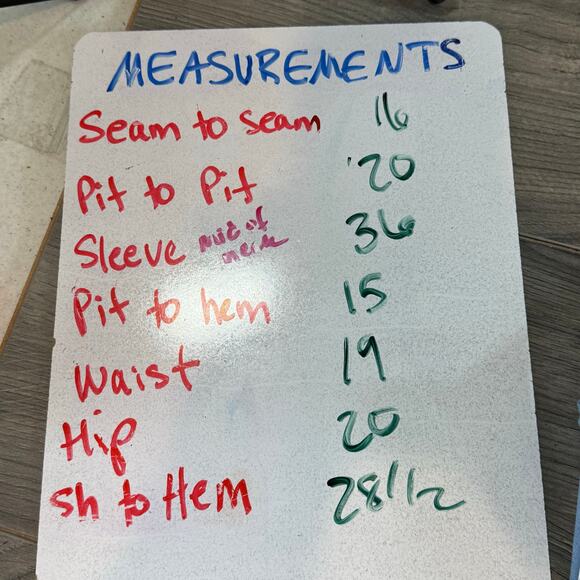 MEASUREMENTS
Seam to seam 16
Pit to Pit 20
Sleeve mid of neck 36
Pit to hem 15
Waist 19
Hip 20
Sh to Hem 28 1/2